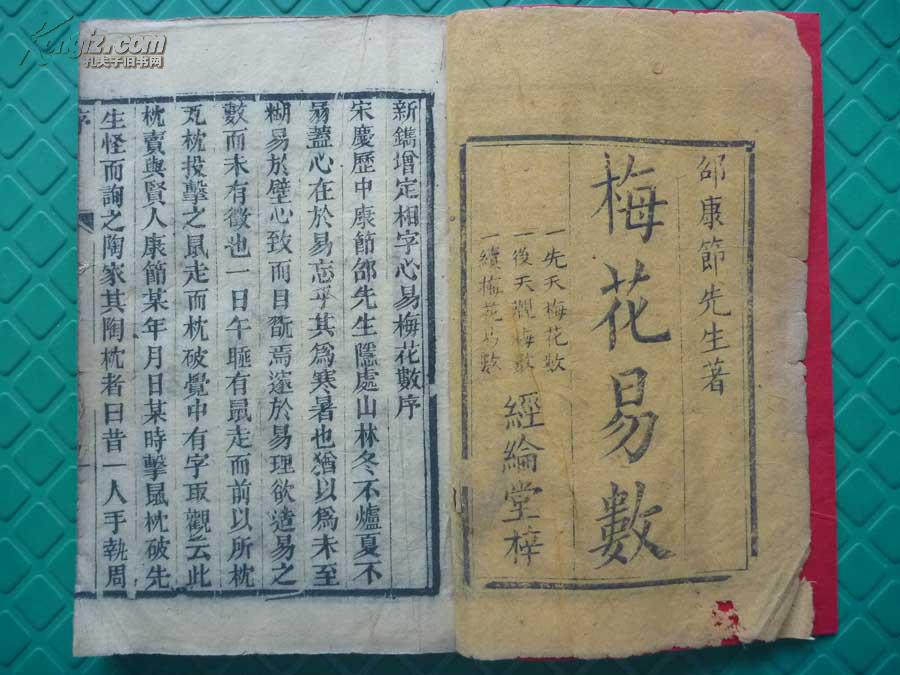 邵康節先生著
梅花易數
一先天梅花數
一後天觀梅數
一續梅花易數
經綸堂梓
新鐫增定相字心易梅花數序
宋慶歷中康節邵先生隱處山林冬不爐夏不
易蓋心在於易忘乎其爲寒暑也猶以爲未至
糊易於壁心致而目翫焉邃於易理欲造易之
數而未有徵也一日午睡有鼠走而前以所枕
瓦枕投擊之鼠走而枕破覺中有字取觀云此
枕賣與賢人康節某年月日某時擊鼠枕破先
生怪而詢之陶家其陶枕者曰昔一人手執周
序
Kongfz.com
孔夫子旧书网